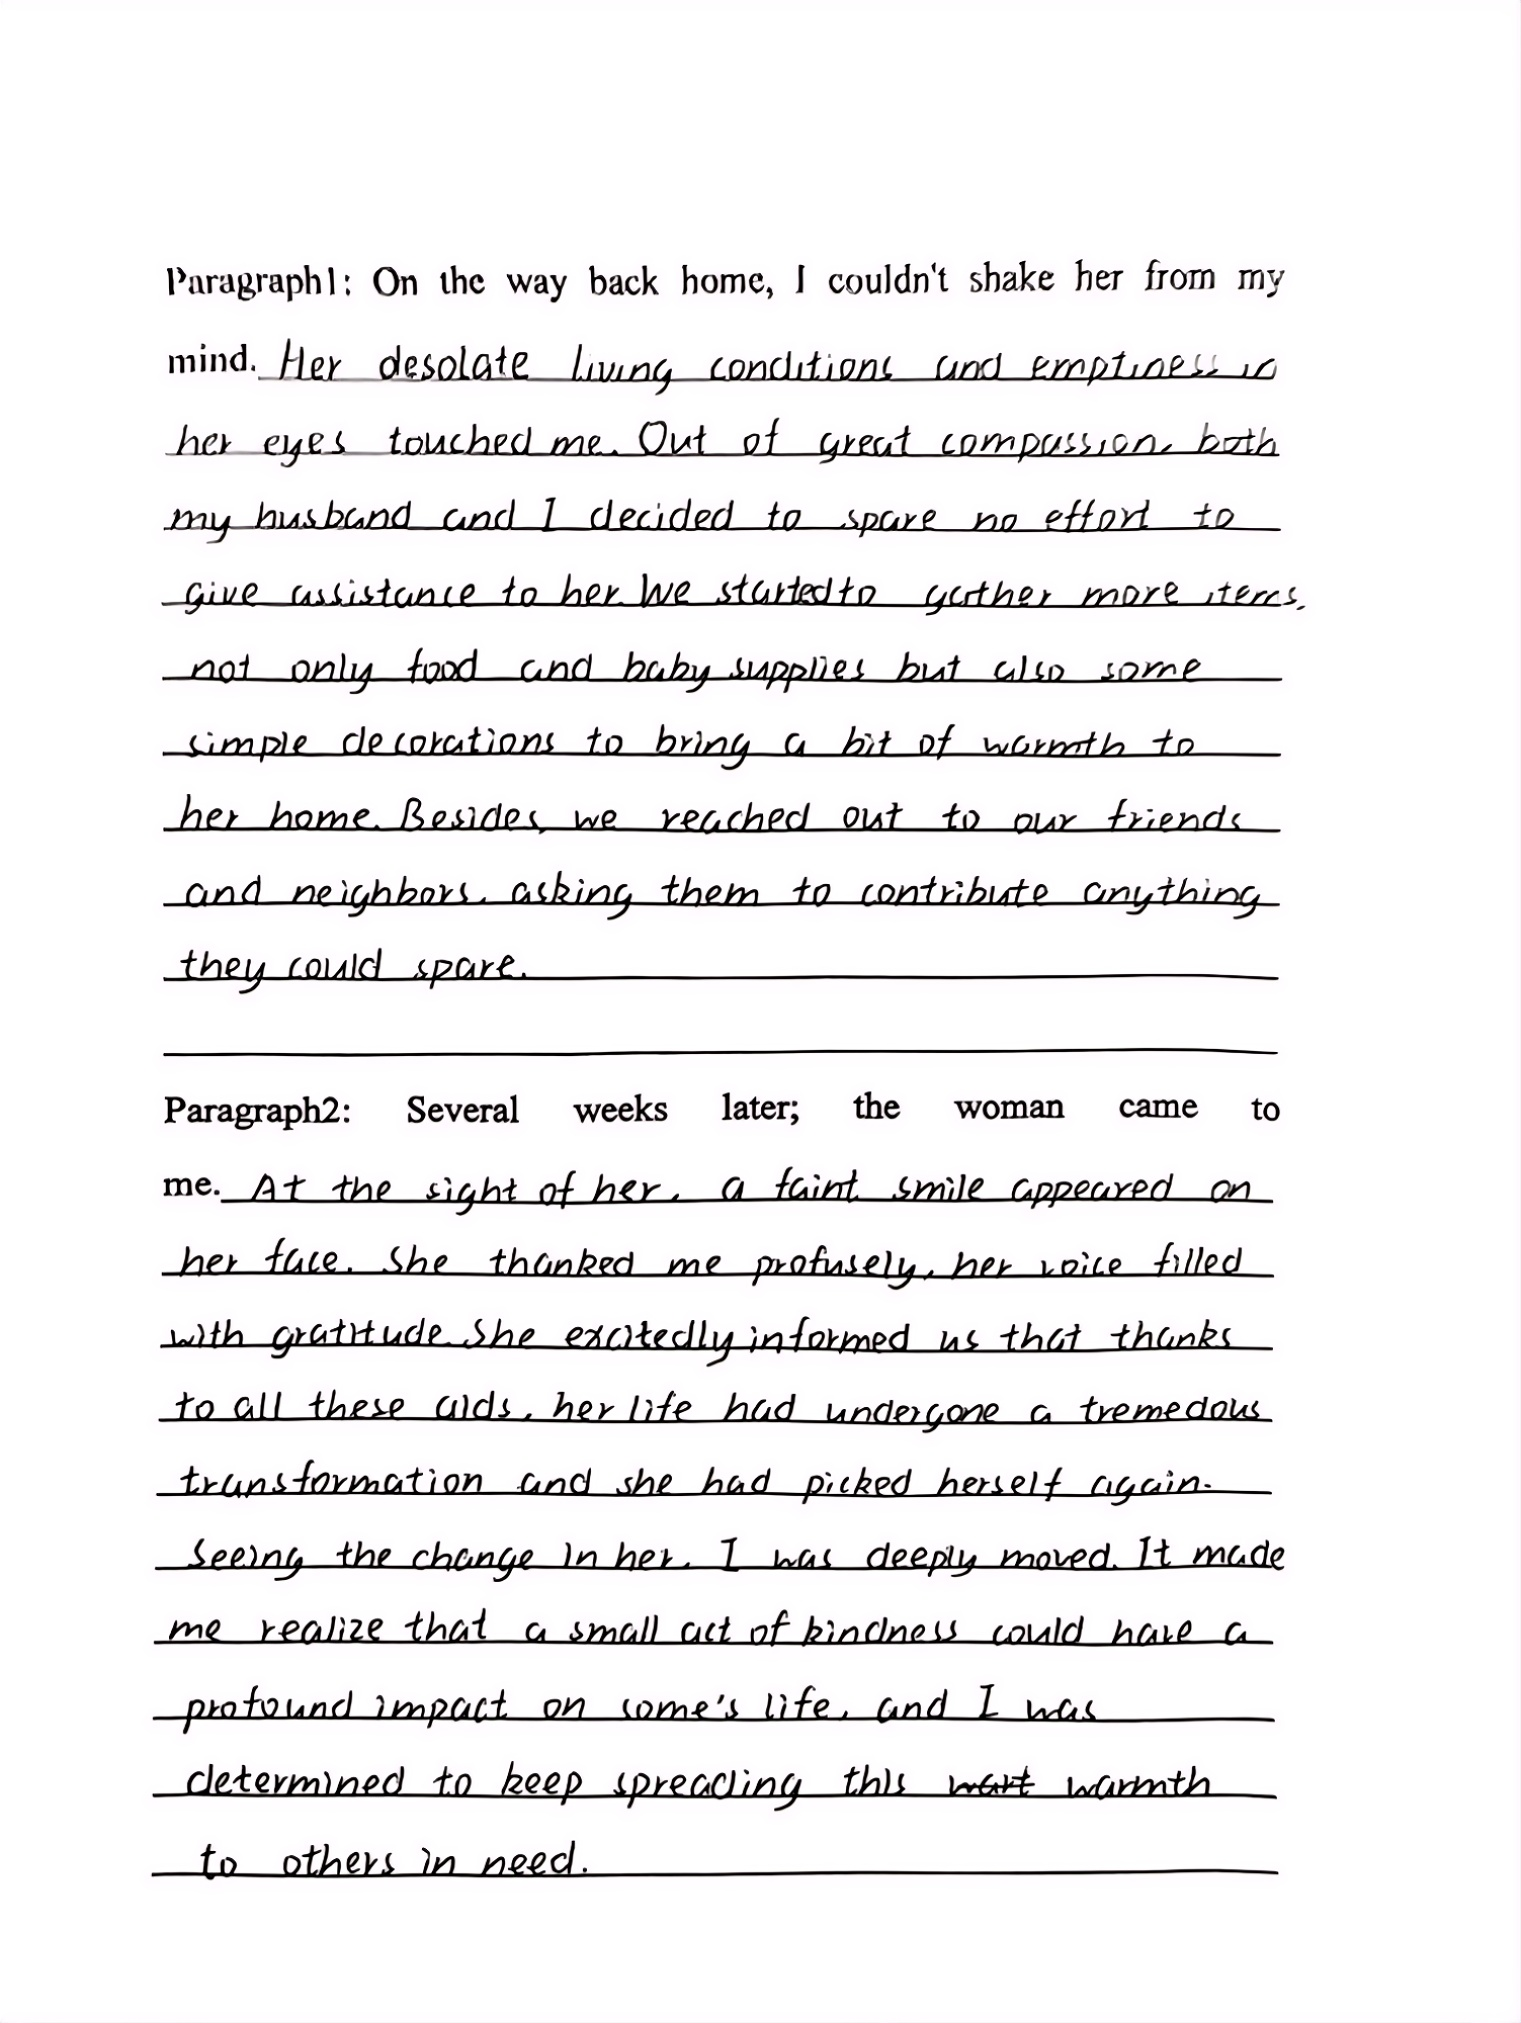 Paragraph1: On the way back home, I couldn't shake her from my
mind. Her desolate living conditions and emptiness in
her eyes touched me. Out of great compassion, both
my husband and I decided to spare no effort to
give assistance to her. We started to gather more items,
not only food and baby supplies but also some
simple decorations to bring a bit of warmth to
her home. Besides, we reached out to our friends
and neighbors, asking them to contribute anything
they could spare.
Paragraph2: Several weeks later; the woman came to
me. At the sight of her, a faint smile appeared on
her face. She thanked me profusely, her voice filled
with gratitude. She excitedly informed us that thanks
to all these aids, her life had undergone a tremedous
transformation and she had picked herself again.
Seeing the change in her, I was deeply moved. It made
me realize that a small act of kindness could have a
profound impact on some's life, and I was
determined to keep spreading this wart warmth
to others in need.